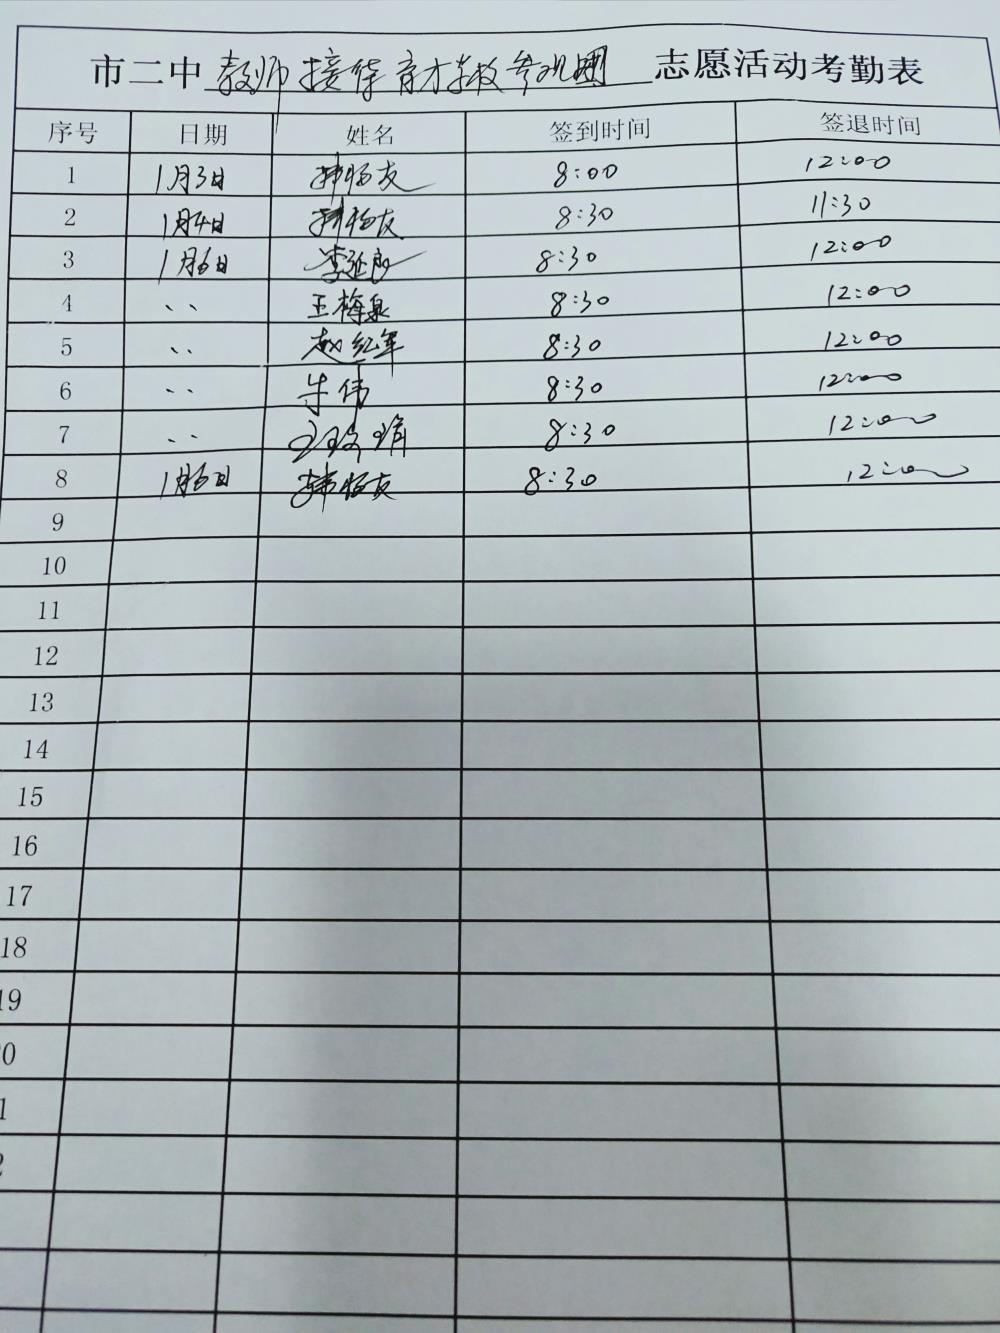 市二中教师接待育才学校参观团志愿活动考勤表
序号 日期 姓名 签到时间 签退时间
1 1月3日 韩杨友 8:00 12:00
2 1月4日 韩杨友 8:30 11:30
3 1月6日 李延 8:30 12:00
4 〃 王梅泉 8:30 12:00
5 〃 赵红军 8:30 12:00
6 〃 牛伟 8:30 12:00
7 〃 王玫娟 8:30 12:00
8 1月6日 韩杨友 8:30 12:00
9
10
11
12
13
14
15
16
17
18
19